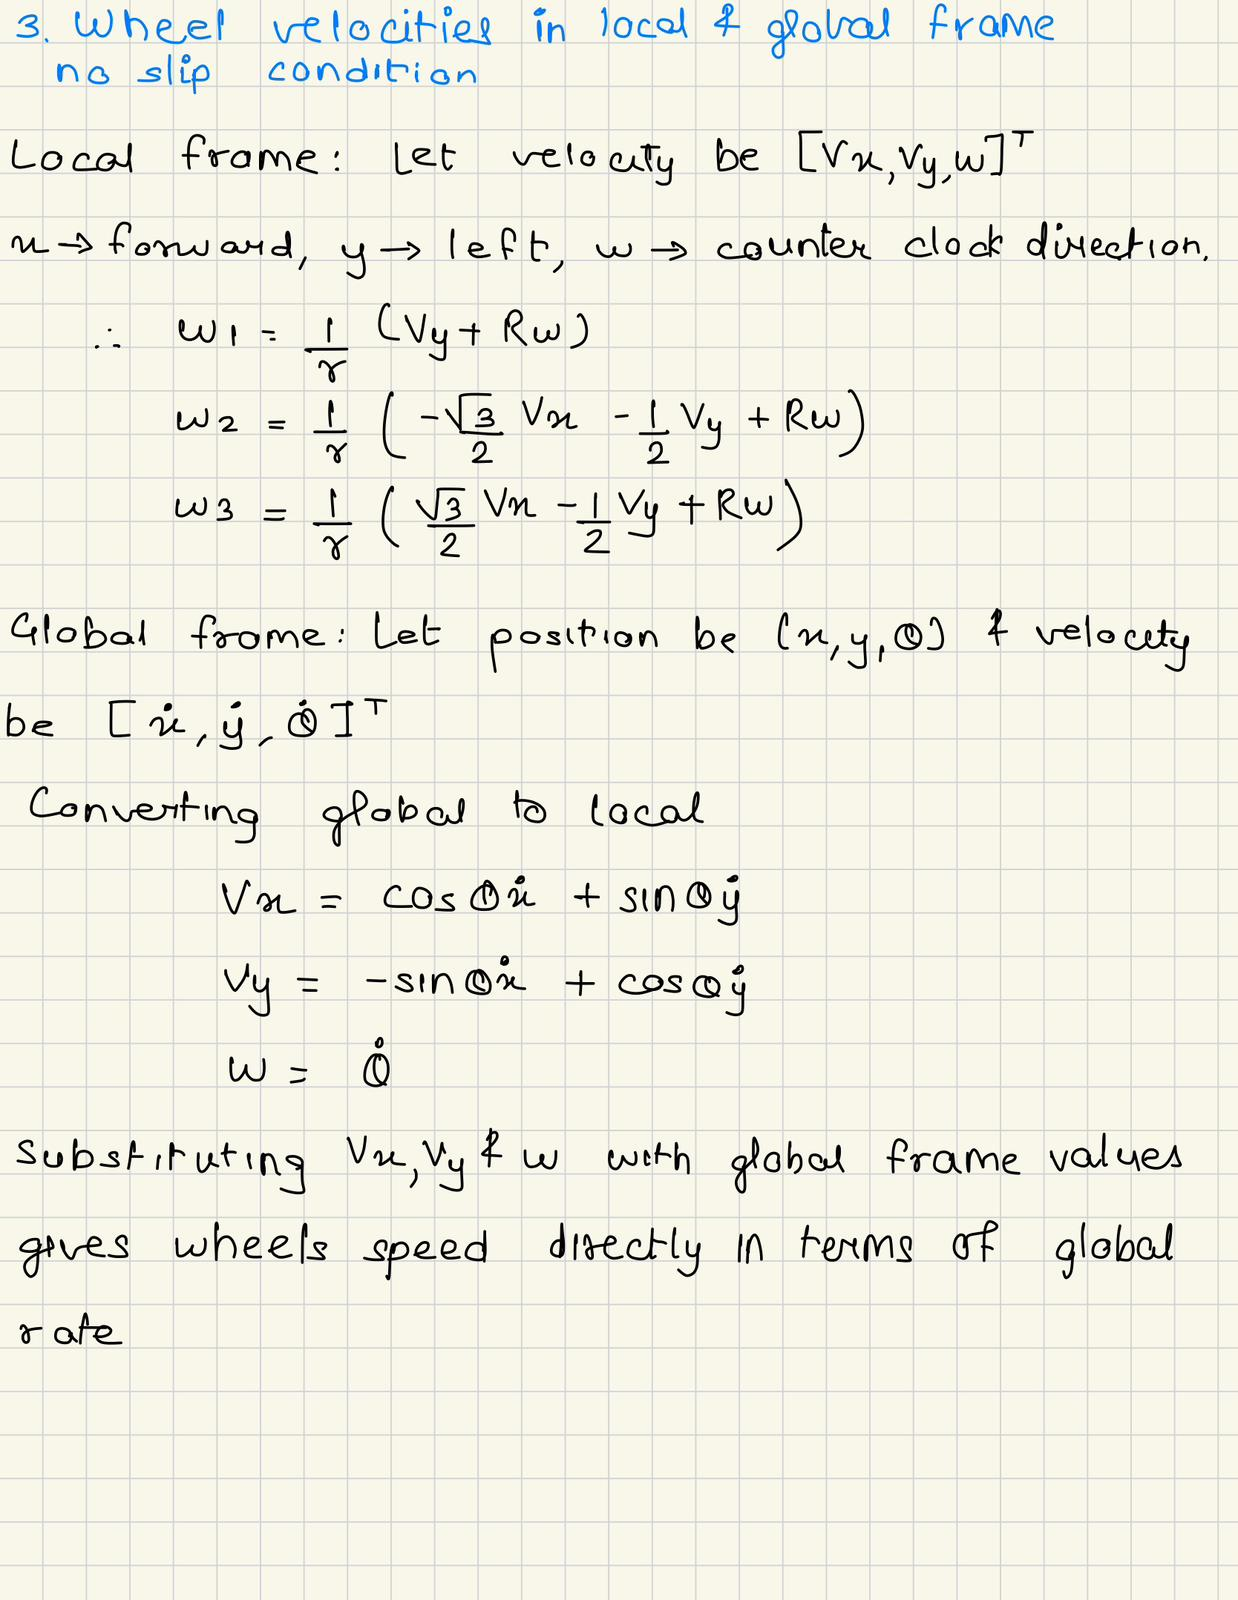 3. Wheel velocities in local & global frame
no slip condition
Local frame: Let velocity be [Vx, Vy, w]ᵀ
x → forward, y → left, w → counter clock direction.
∴ w1 = 1/r (Vy + Rw)
w2 = 1/r (-√3/2 Vx - 1/2 Vy + Rw)
w3 = 1/r (√3/2 Vx - 1/2 Vy + Rw)
Global frame: Let position be (x, y, θ) & velocity
be [ẋ, ẏ, θ̇]ᵀ
Converting global to local
Vx = cosθẋ + sinθẏ
Vy = -sinθẋ + cosθẏ
w = θ̇
Substituting Vx, Vy & w with global frame values
gives wheels speed directly in terms of global
rate